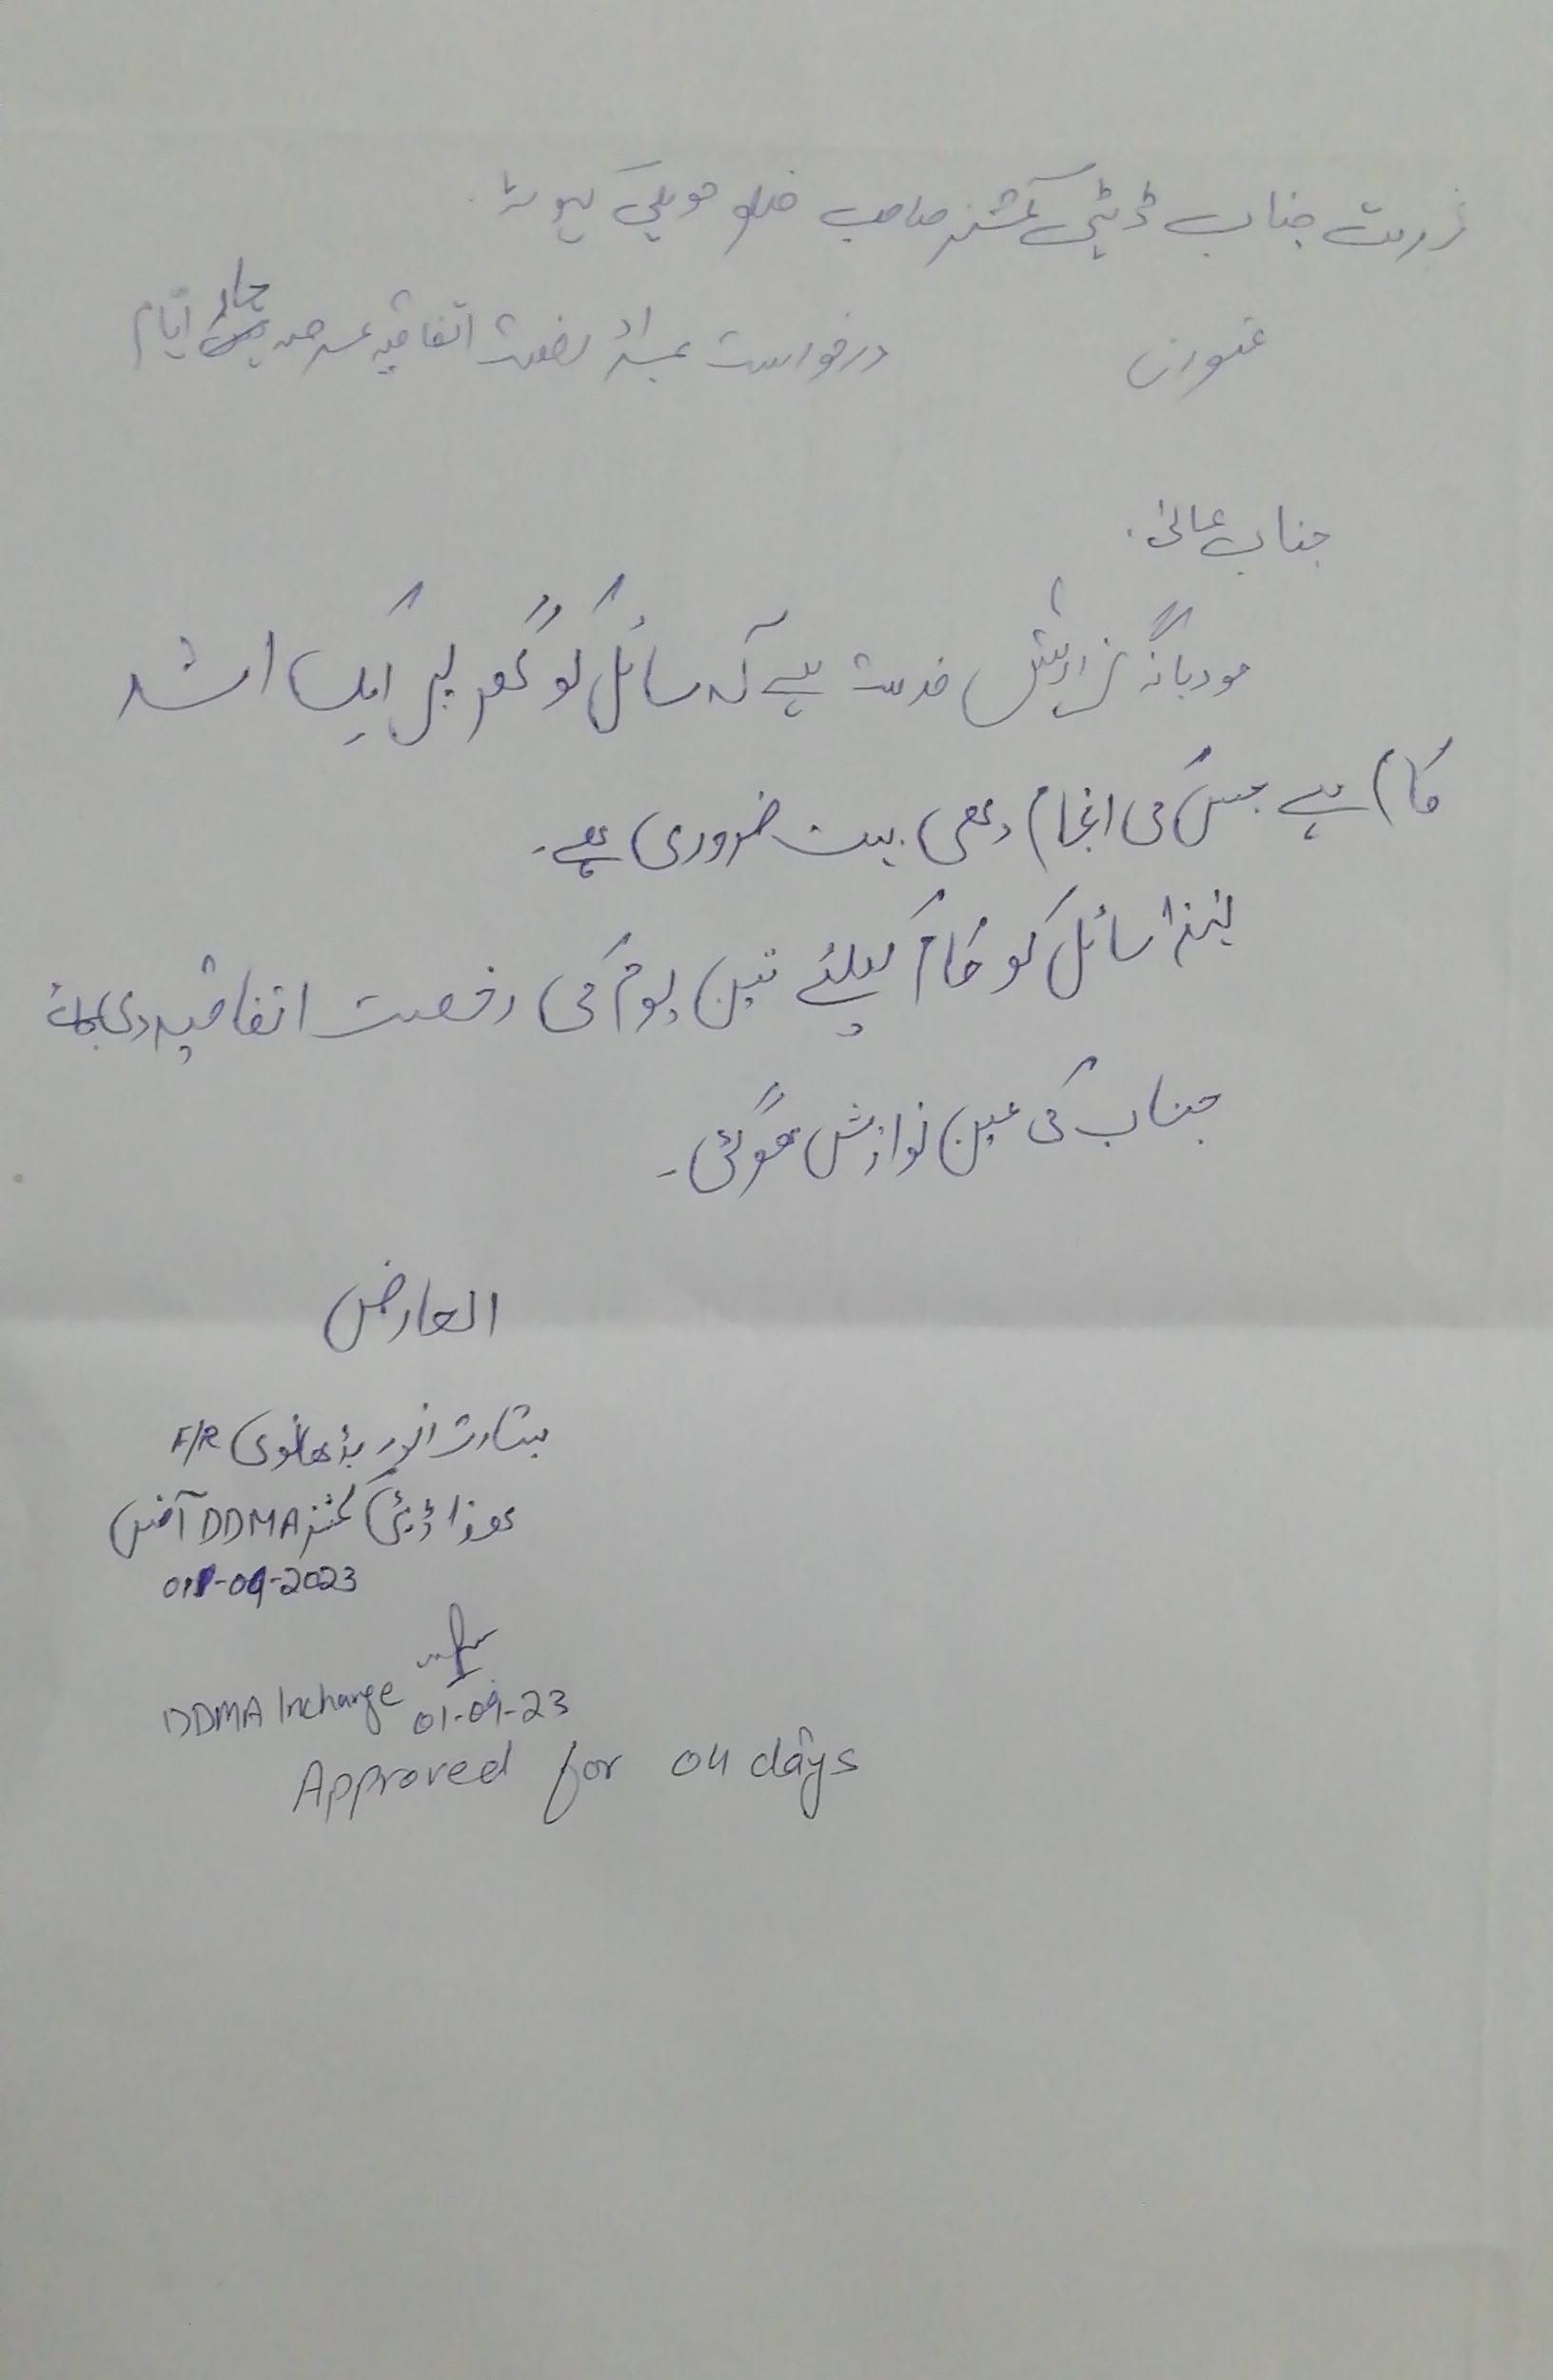 خدمت جناب ڈپٹی کمشنر صاحب ضلع حویلی کہوٹہ.
عنوان درخواست بمراد رخصت اتفاقیہ عرصہ چار ایام
جناب عالیٰ.
مودبانہ گزارش خدمت ہے کہ سائل کو گھر پر ایک اشد
کام ہے جس کی انجام دہی بہت ضروری ہے۔
لہٰذا سائل کو کام کیلئے تین یوم کی رخصت اتفاقیہ دی جائے
جناب کی عین نوازش ہوگی۔
العارض
بشارت انور بڈھانوی F/R
ڈپٹی کمشنر DDMA آفس
01-09-2023
DDMA Incharge 01-09-23
Approved for 04 days